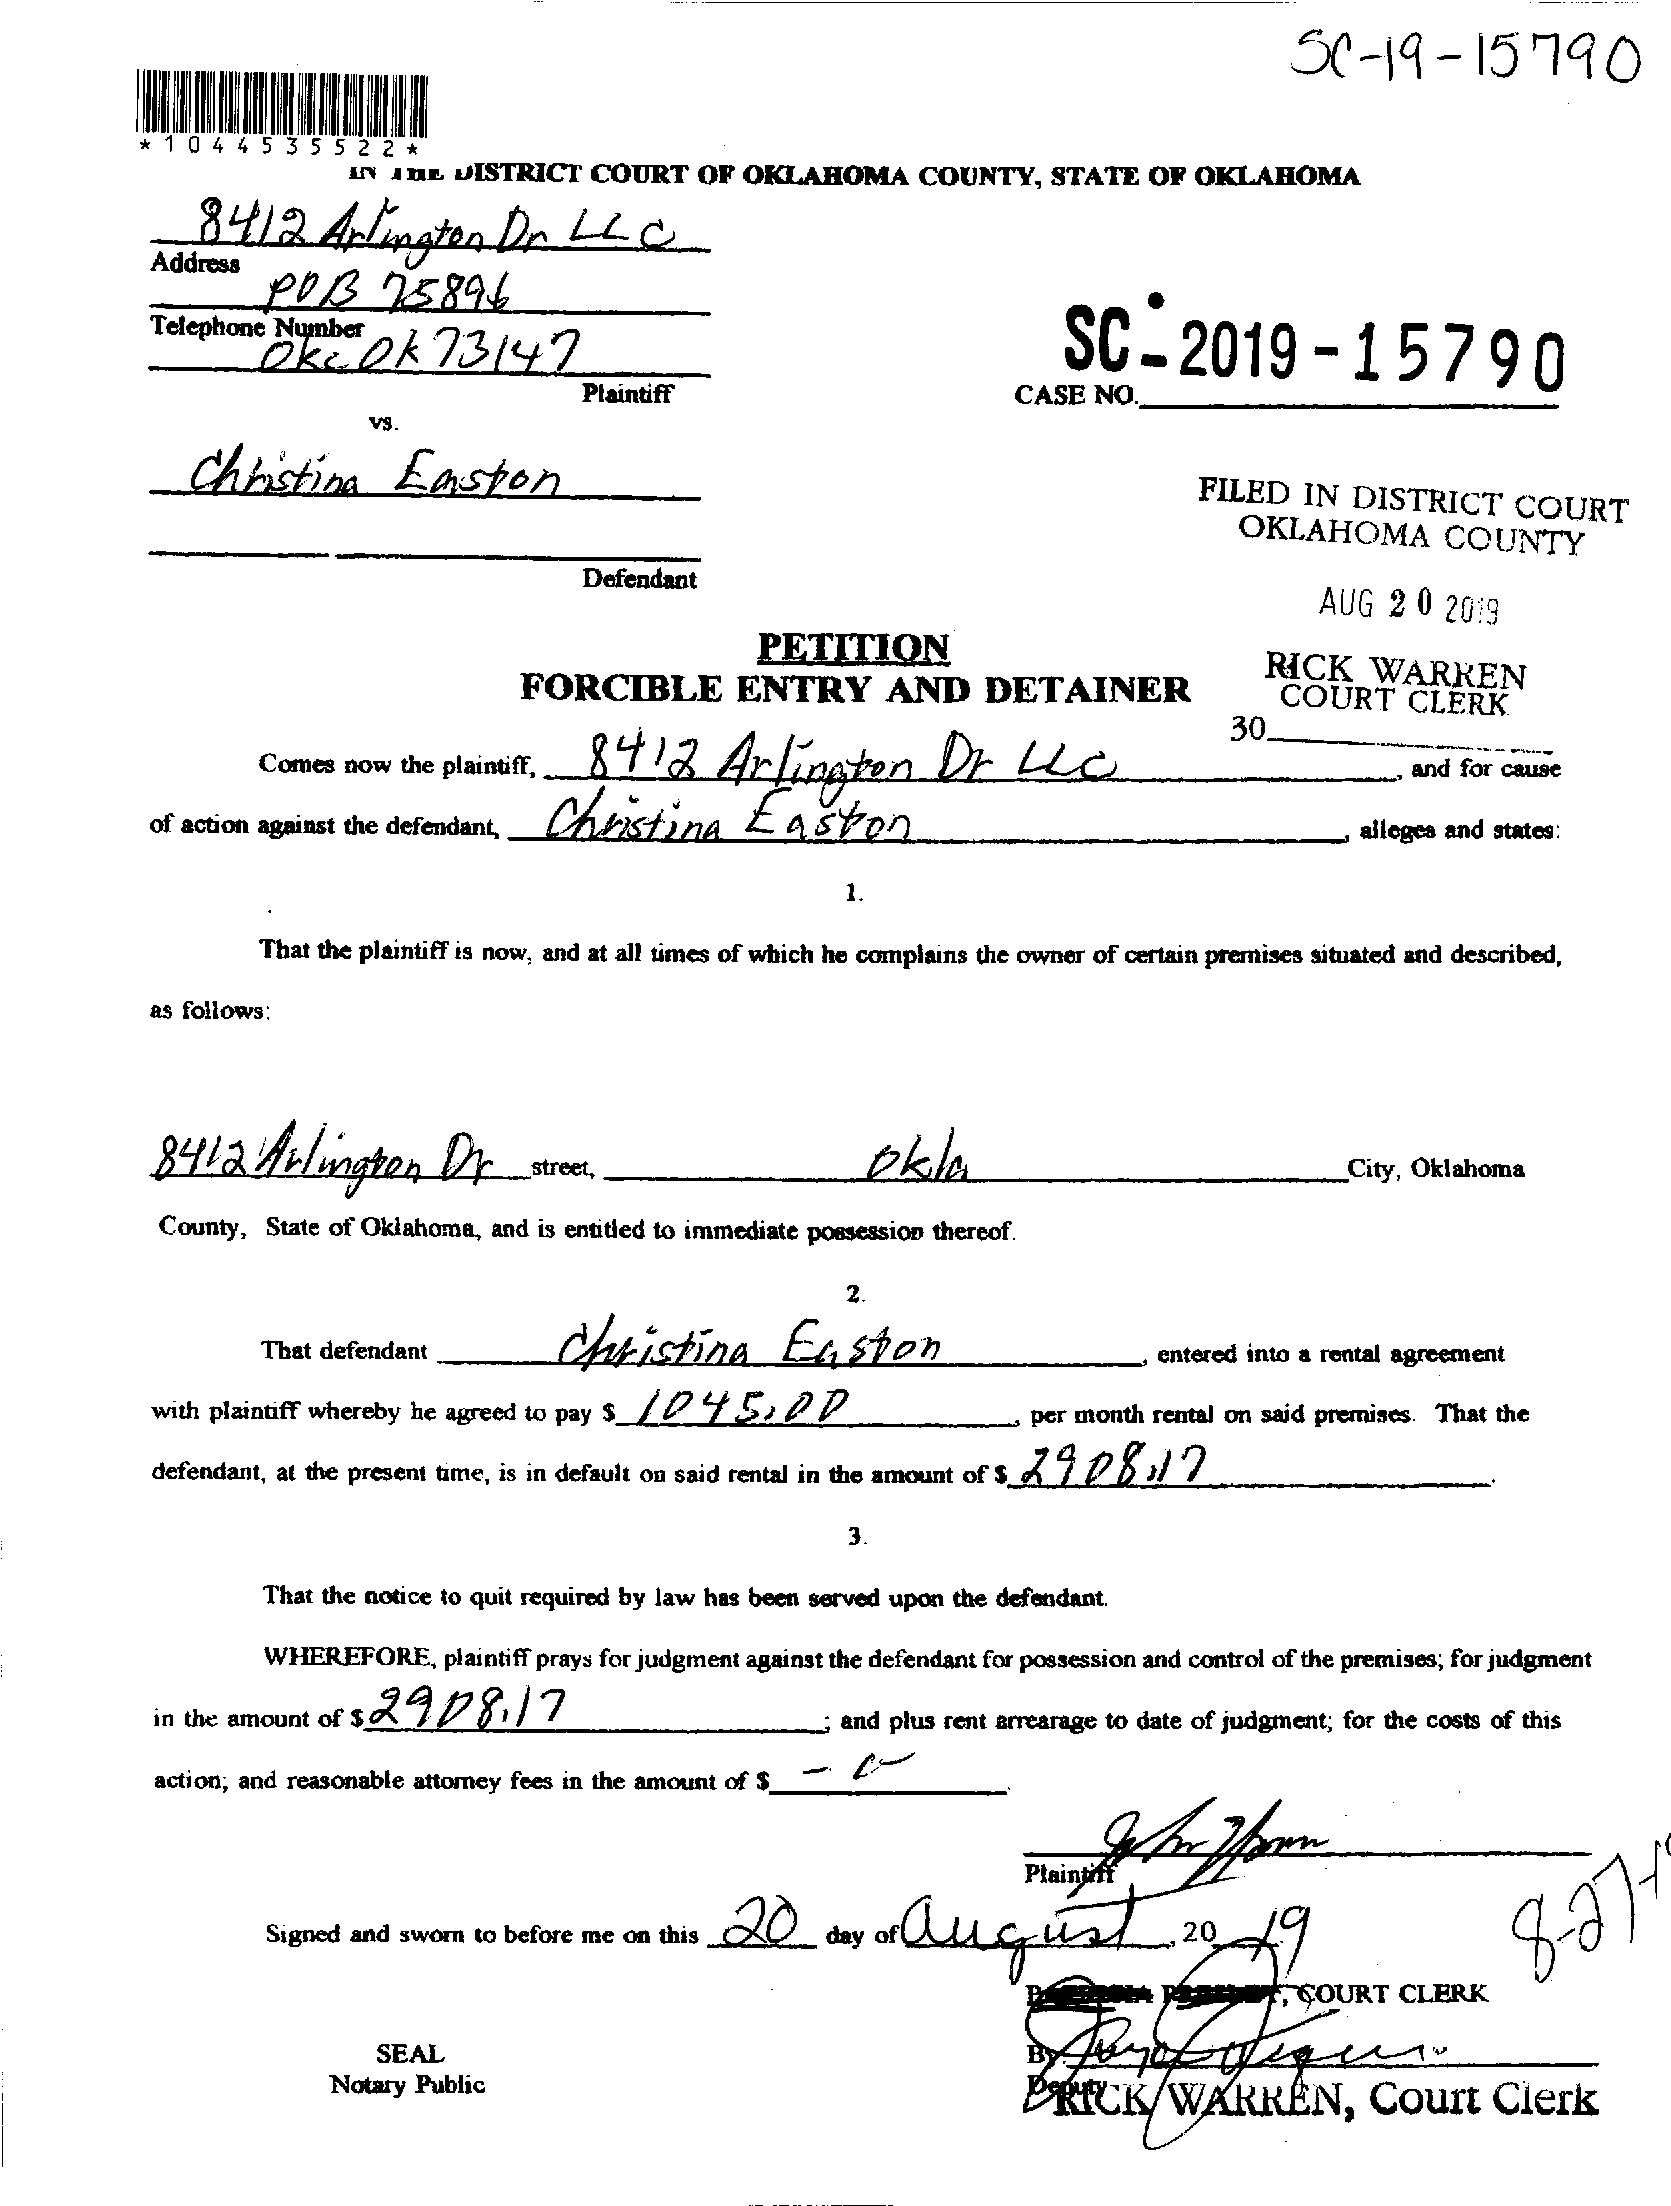 SC-19-15790
*1044535522*
IN THE DISTRICT COURT OF OKLAHOMA COUNTY, STATE OF OKLAHOMA
8412 Arlington Dr LLC
Address
POB 75896
Telephone Number
Okc OK 73147
Plaintiff
SC-2019-15790
CASE NO.
vs.
Christina Easton
Defendant
FILED IN DISTRICT COURT
OKLAHOMA COUNTY
AUG 20 2019
RICK WARREN
COURT CLERK
30
PETITION
FORCIBLE ENTRY AND DETAINER
Comes now the plaintiff, 8412 Arlington Dr LLC, and for cause
of action against the defendant, Christina Easton, alleges and states:
1.
That the plaintiff is now, and at all times of which he complains the owner of certain premises situated and described,
as follows:
8412 Arlington Dr street, Okla City, Oklahoma
County, State of Oklahoma, and is entitled to immediate possession thereof.
2.
That defendant Christina Easton, entered into a rental agreement
with plaintiff whereby he agreed to pay $ 1045.00, per month rental on said premises. That the
defendant, at the present time, is in default on said rental in the amount of $ 2908.17.
3.
That the notice to quit required by law has been served upon the defendant.
WHEREFORE, plaintiff prays for judgment against the defendant for possession and control of the premises; for judgment
in the amount of $ 2908.17; and plus rent arrearage to date of judgment; for the costs of this
action; and reasonable attorney fees in the amount of $
Plaintiff
Signed and sworn to before me on this 20 day of August, 20 19
, COURT CLERK
By
Deputy
RICK WARREN, Court Clerk
SEAL
Notary Public